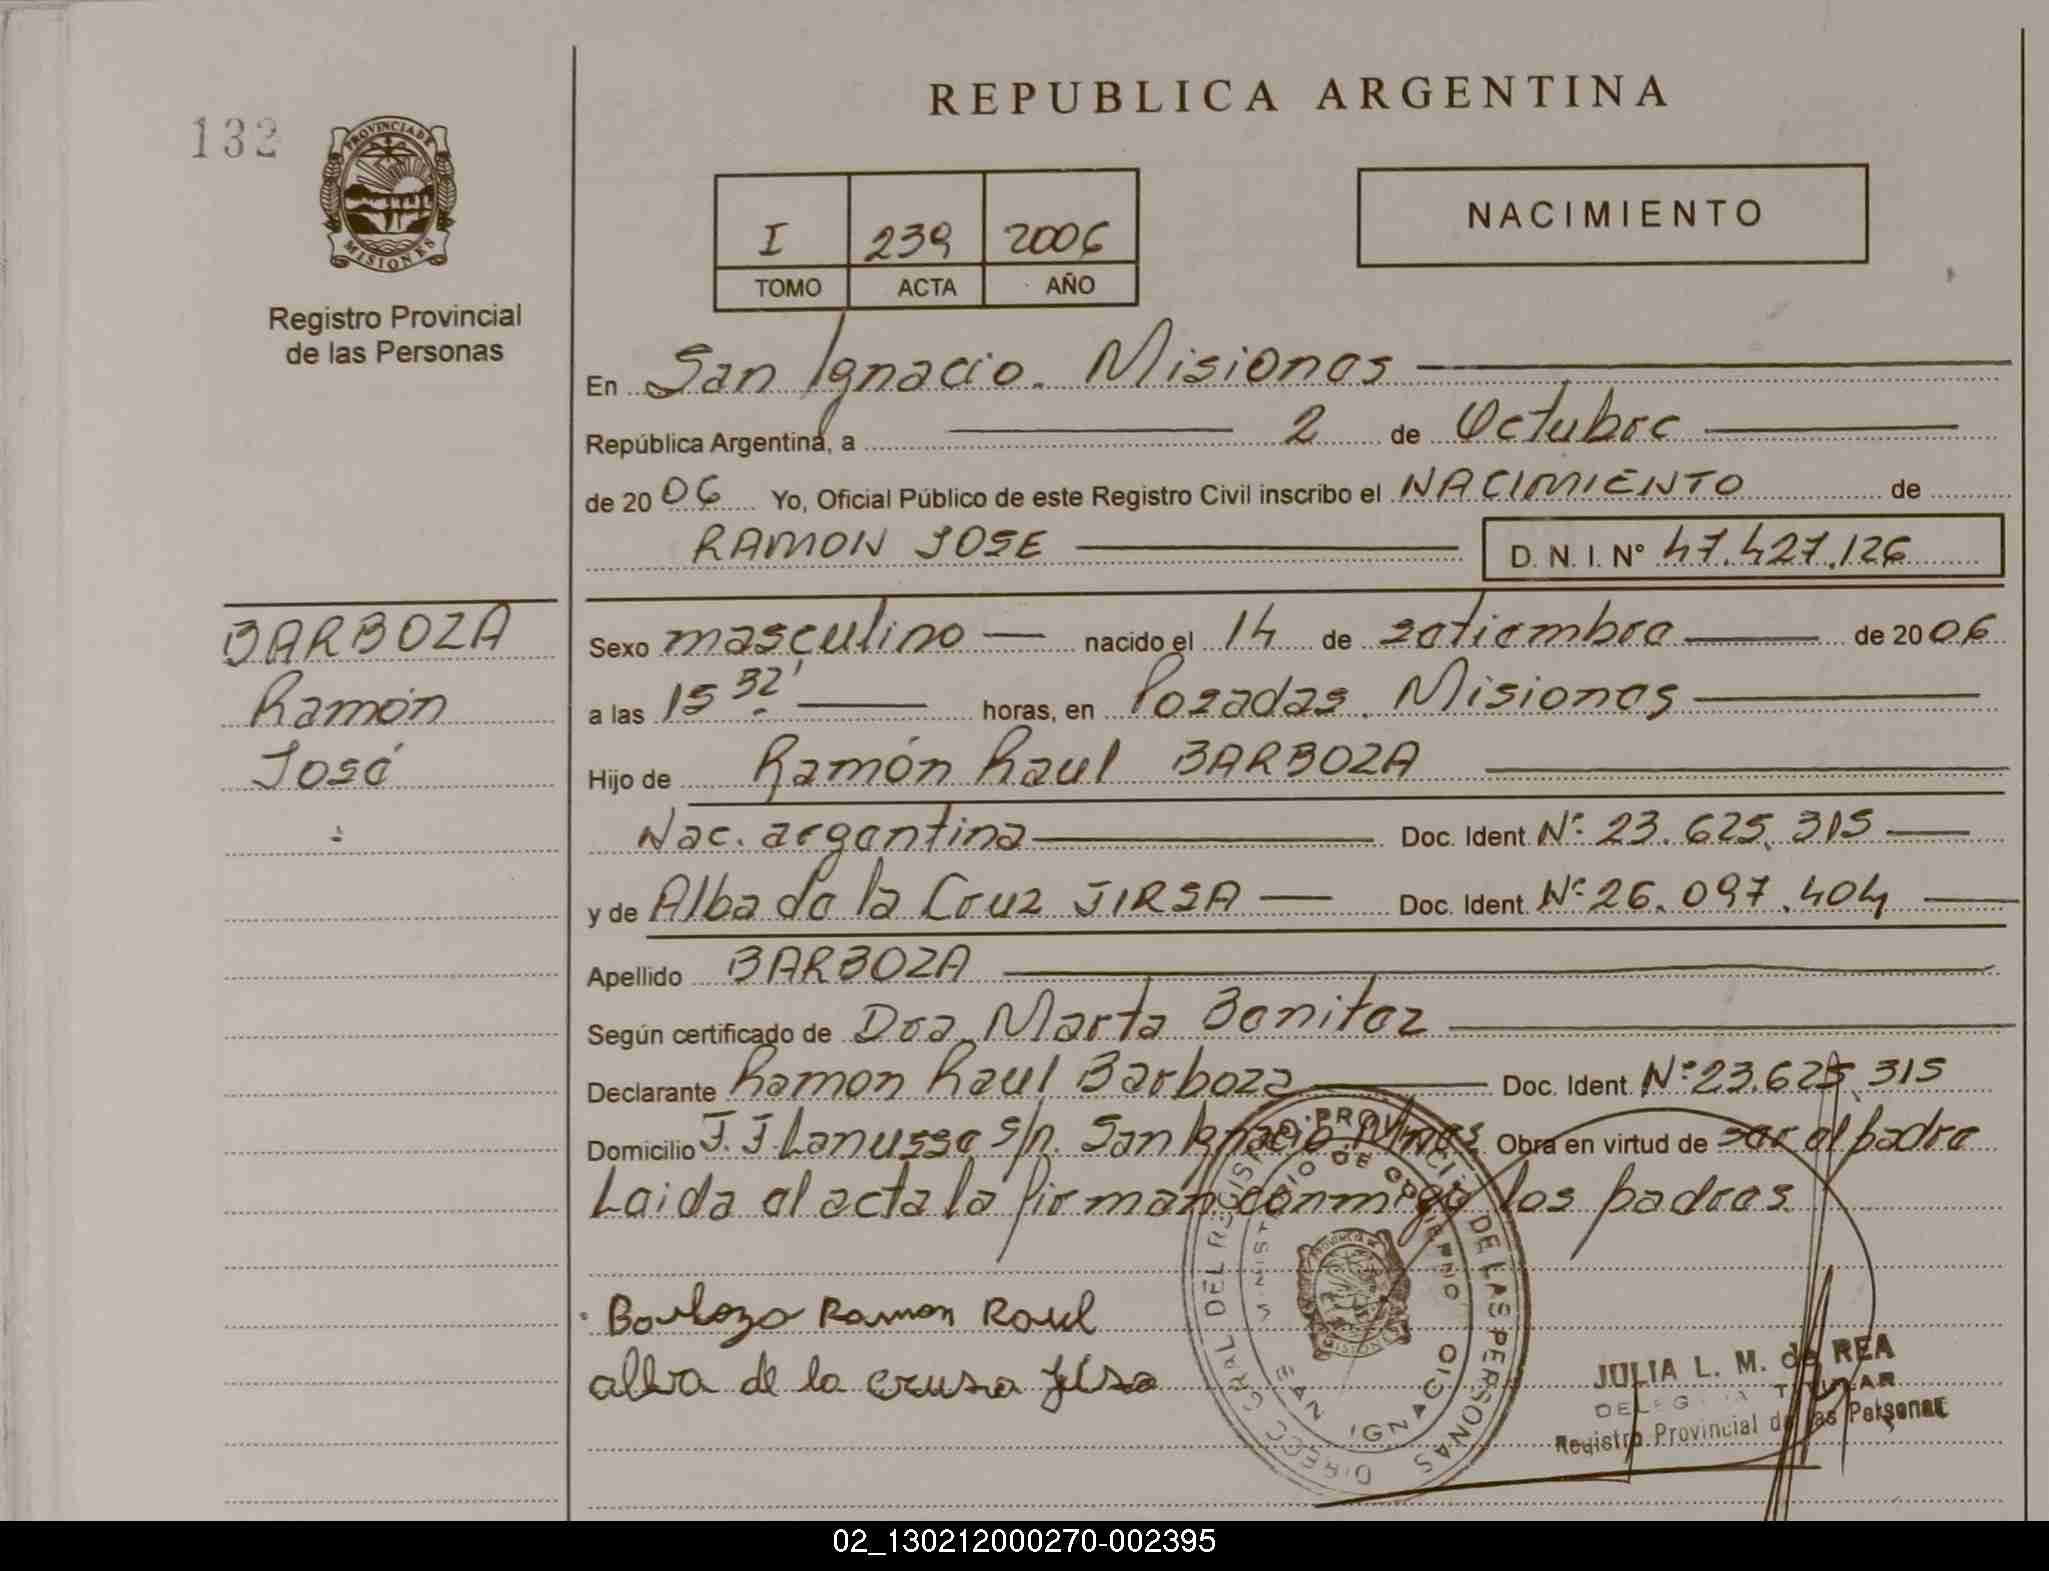 REPUBLICA ARGENTINA
132
PROVINCIA DE
MISIONES
Registro Provincial
de las Personas
I 239 2006
TOMO ACTA AÑO
NACIMIENTO
En San Ignacio. Misiones
República Argentina, a 2 de Octubre
de 2006 Yo, Oficial Público de este Registro Civil inscribo el NACIMIENTO de
RAMON JOSE D. N. I. N° 47.427.126
BARBOZA
Ramón
José
Sexo masculino nacido el 14 de setiembre de 2006
a las 15 32' horas, en Posadas. Misiones
Hijo de Ramón Raul BARBOZA
Nac. argentina Doc. Ident. N°: 23.625.315
y de Alba de la Cruz JIRSA Doc. Ident. N°: 26.097.404
Apellido BARBOZA
Según certificado de Dra. Marta Benitez
Declarante Ramon Raul Barboza Doc. Ident. N°: 23.625.315
Domicilio J. J. Lanusse s/n. San Ignacio Mnes. Obra en virtud de ser el padre
Leida el acta la firman conmigo los padres.
Barboza Ramon Raul
alba de la crusa Jirsa
DIRECC. GRAL. DEL REGISTRO PROVINCIAL DE LAS PERSONAS
MINISTERIO DE GOBIERNO
SAN IGNACIO
JULIA L. M. de REA
DELEGADA TITULAR
Registro Provincial de las Personas
02_130212000270-002395